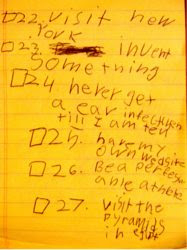 22. visit new
York
23. invent
something
24 never get
a ear infection
till I am ten
25. have my
own website
26. Be a
able athlete
27. visit the
pyramids
in egypt